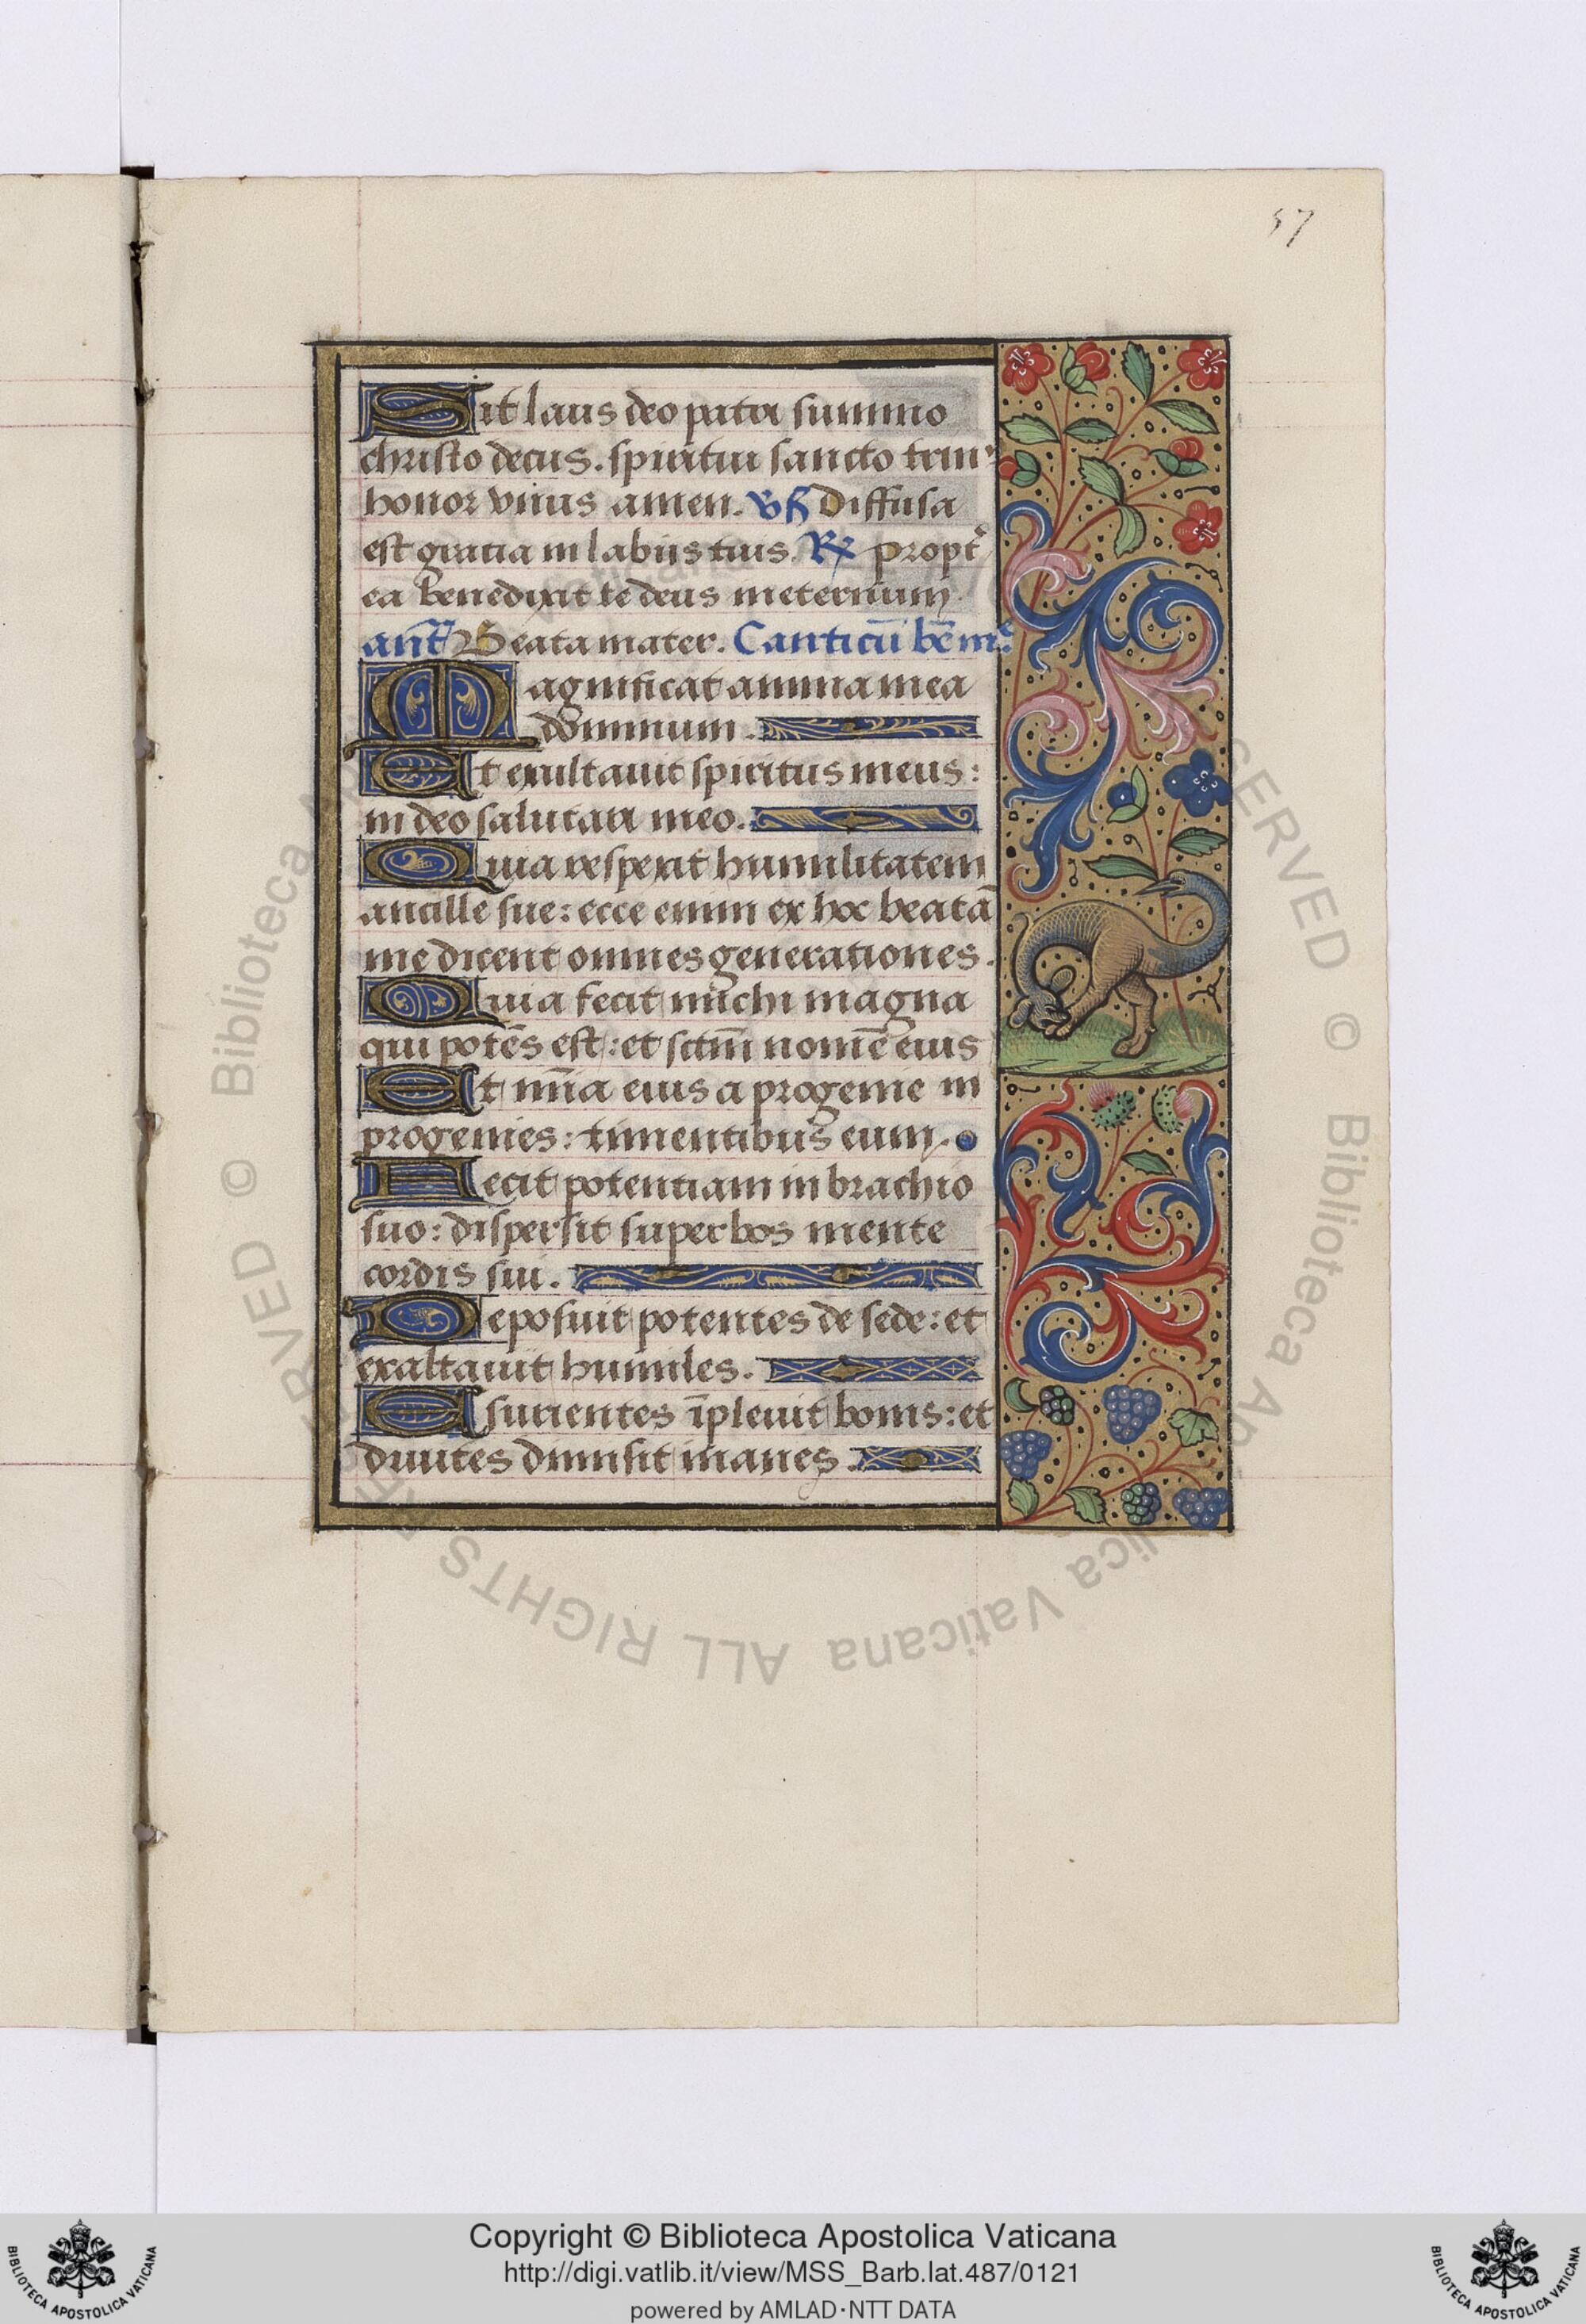 57
Sit laus deo patri summo
christo decus. spiritui sancto trin9
honor vnus amen. v̄ß Diffusa
est gratia in labiis tuis. R℣ propt̉
ea benedixit te deus in eternum
ant̃ Beata mater. Canticū bẽ mͤ.
Magnificat anima mea
dominum.
Et exultauit spiritus meus:
in deo salutari meo.
Quia respexit humilitatem
ancille sue: ecce enim ex hoc beatā
me dicent omnes generationes.
Quia fecit michi magna
qui potēs est: et sctm̄ nomē eius
Et mīa eius a progenie in
progenies: timentibus eum.
Fecit potentiam in brachio
suo: dispersit superbos mente
cordis sui.
Deposuit potentes de sede: et
exaltauit humiles.
Esurientes īpleuit bonis: et
diuites dimisit inanes.
Copyright © Biblioteca Apostolica Vaticana
http://digi.vatlib.it/view/MSS_Barb.lat.487/0121
powered by AMLAD·NTT DATA
BIBLIOTECA APOSTOLICA VATICANA
BIBLIOTECA APOSTOLICA VATICANA